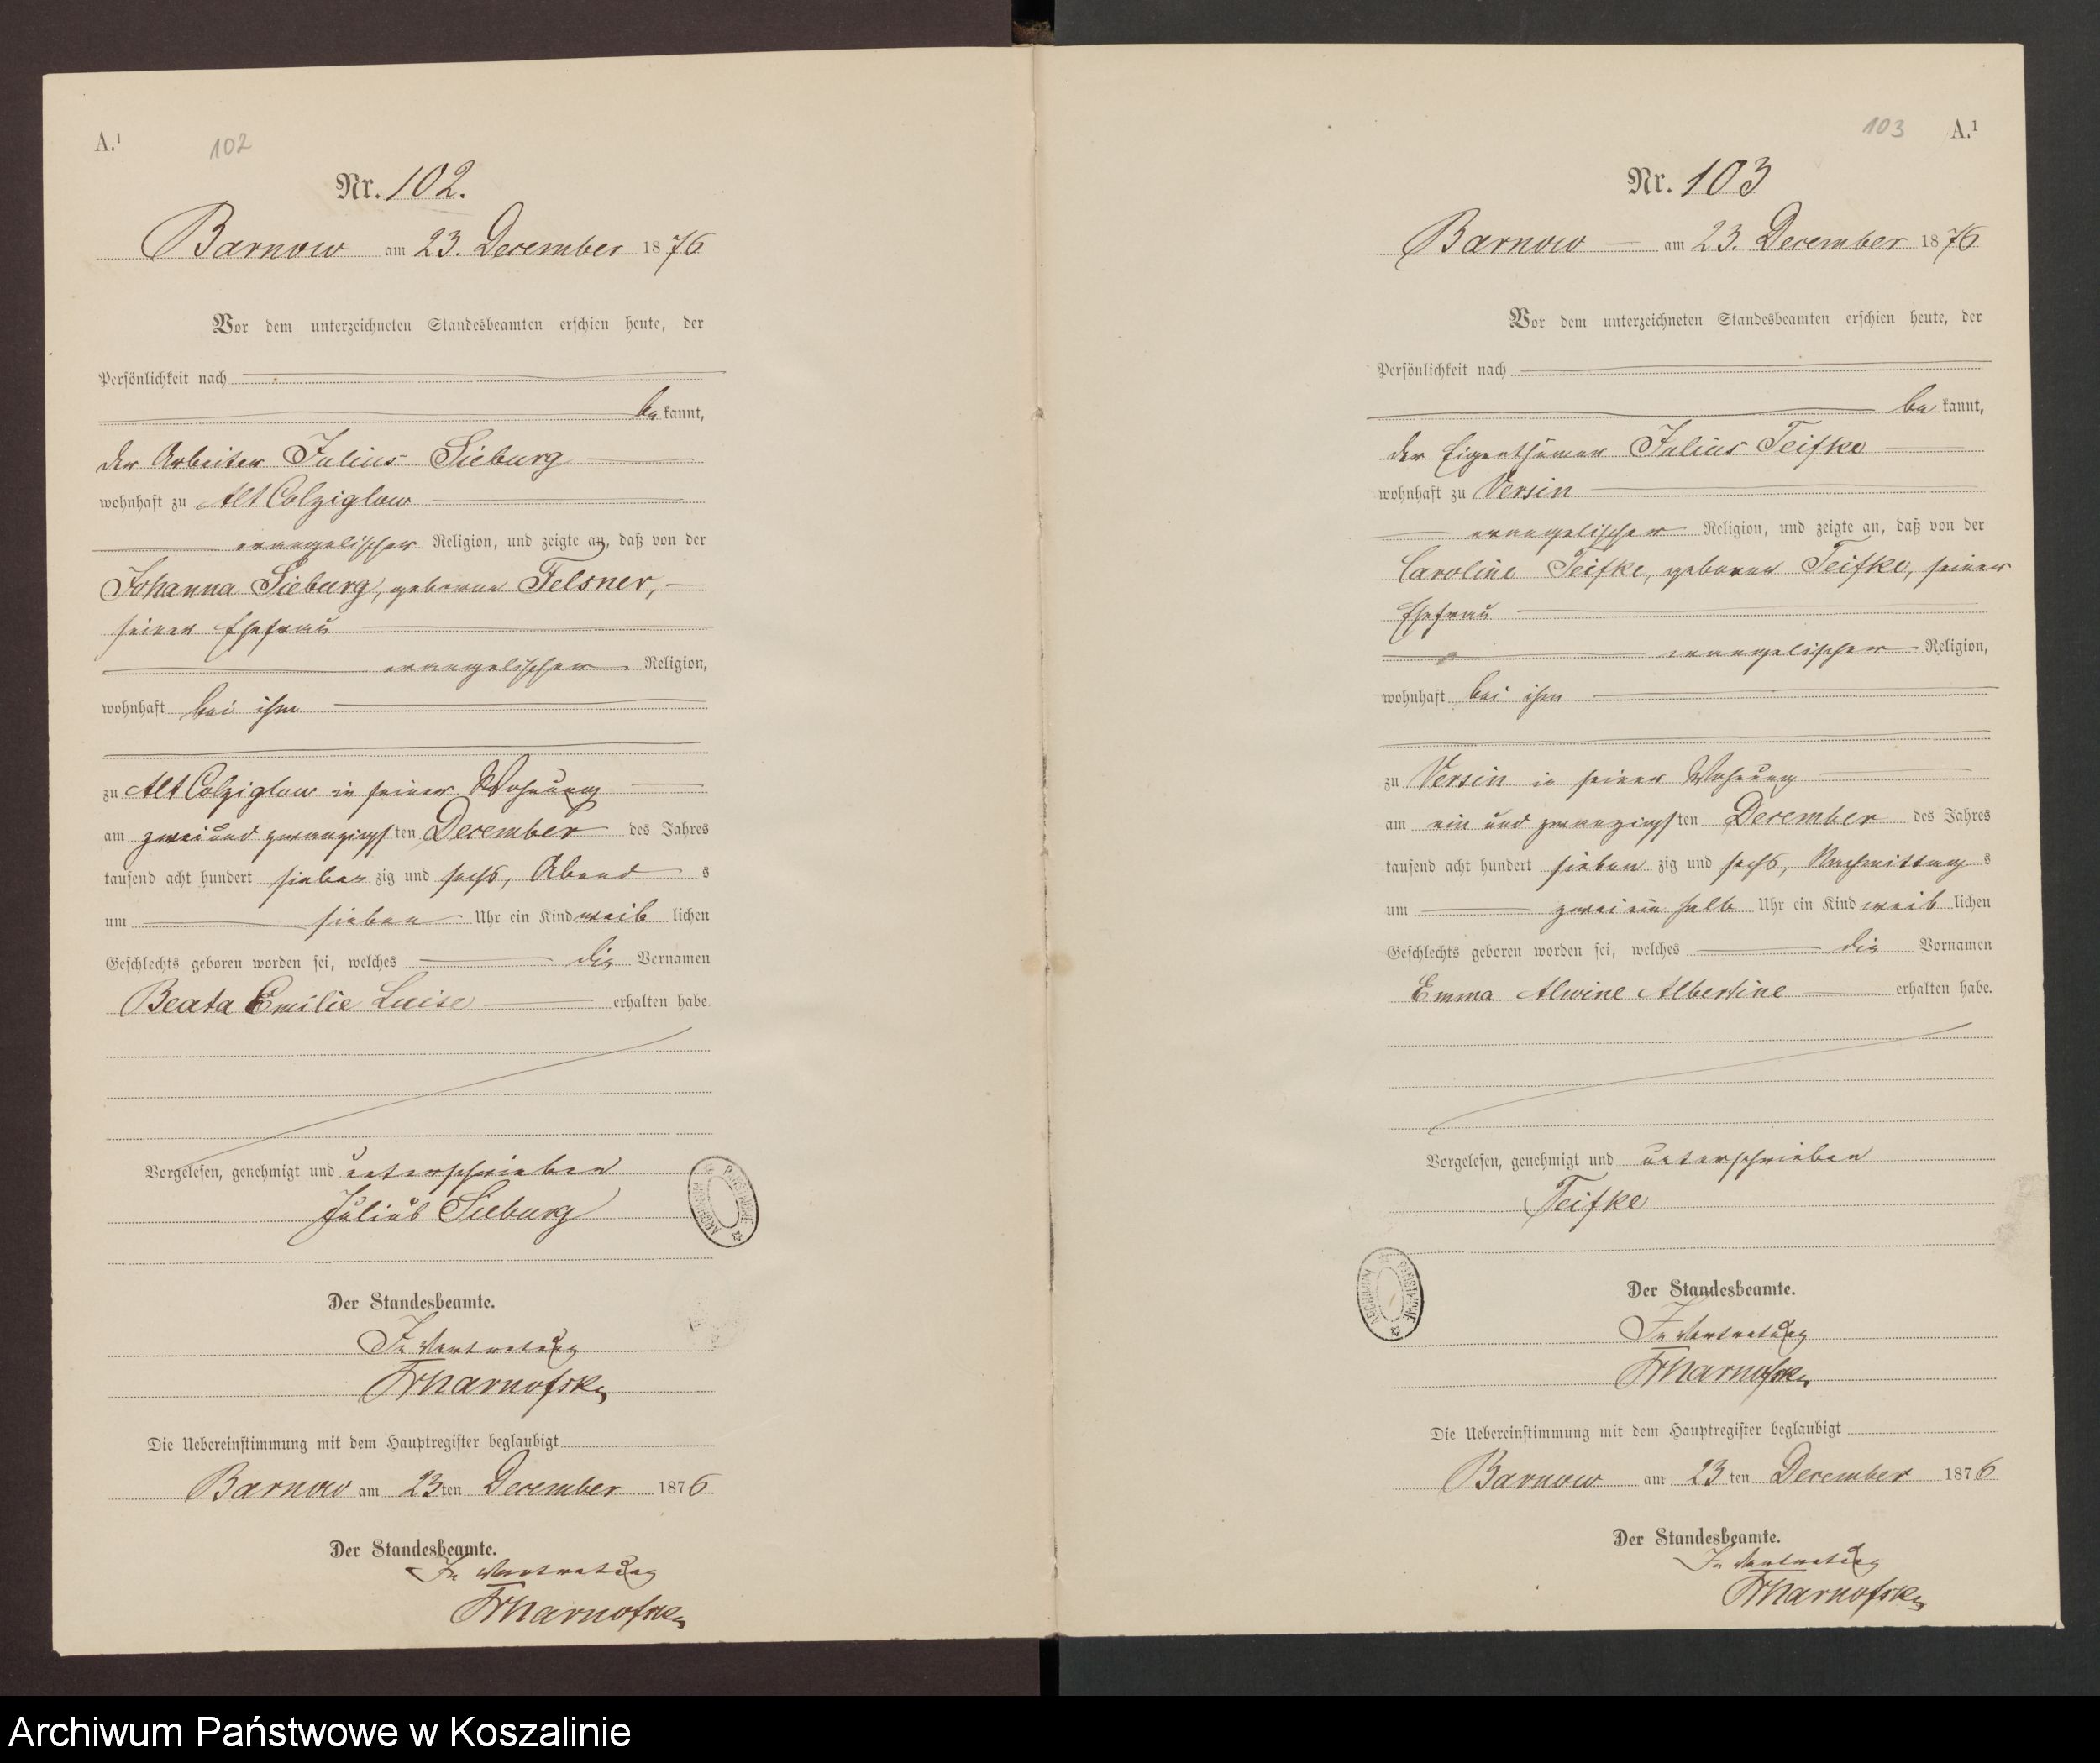 A.¹ 102
Nr. 102.
Barnow am 23. December 1876
Vor dem unterzeichneten Standesbeamten erschien heute, der
Persönlichkeit nach
be kannt,
der Arbeiter Julius Sieburg
wohnhaft zu Alt Colziglow
evangelischer Religion, und zeigte an, daß von der
Johanna Sieburg, geborne Felsner,
seiner Ehefrau
evangelischer Religion,
wohnhaft bei ihm
zu Alt Colziglow in seiner Wohnung
am zwei und zwanzigsten December des Jahres
tausend acht hundert sieben zig und sechs, Abend s
um sieben Uhr ein Kind weib lichen
Geschlechts geboren worden sei, welches die Vornamen
Beata Emilie Luise erhalten habe.
Vorgelesen, genehmigt und unterschrieben
Julius Sieburg
ARCHIWUM PAŃSTWOWE
Der Standesbeamte.
In Vertretung
Die Uebereinstimmung mit dem Hauptregister beglaubigt
Barnow am 23 ten December 1876
Der Standesbeamte.
In Vertretung
103 A.¹
Nr. 103
Barnow am 23. December 1876
Vor dem unterzeichneten Standesbeamten erschien heute, der
Persönlichkeit nach
be kannt,
der Eigenthümer Julius Teifke
wohnhaft zu Versin
evangelischer Religion, und zeigte an, daß von der
Caroline Teifke, geboren Teifke, seiner
Ehefrau
evangelischer Religion,
wohnhaft bei ihm
zu Versin in seiner Wohnung
am ein und zwanzigsten December des Jahres
tausend acht hundert sieben zig und sechs, Nachmittag s
um zwei ein halb Uhr ein Kind weib lichen
Geschlechts geboren worden sei, welches die Vornamen
Emma Alwine Albertine erhalten habe.
Vorgelesen, genehmigt und unterschrieben
Teifke
ARCHIWUM PAŃSTWOWE
Der Standesbeamte.
In Vertretung
Die Uebereinstimmung mit dem Hauptregister beglaubigt
Barnow am 23 ten December 1876
Der Standesbeamte.
In Vertretung
Archiwum Państwowe w Koszalinie